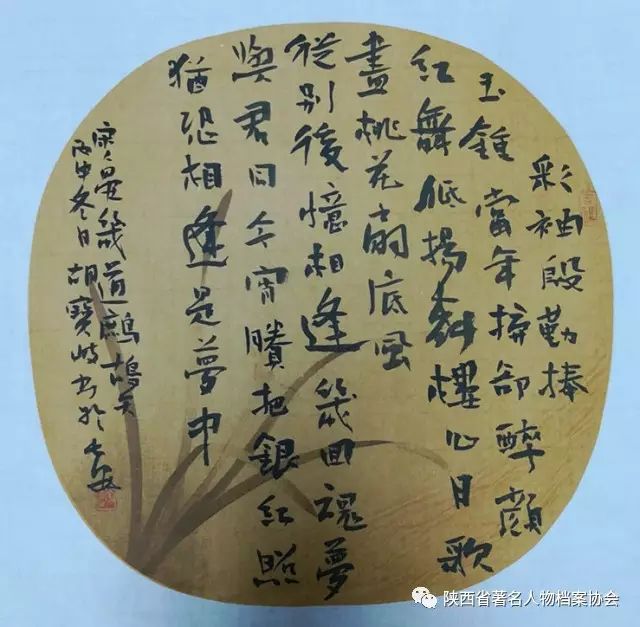 彩袖殷勤捧
玉鍾當年拚却醉顔
紅舞低楊柳樓心月歌
盡桃花扇底風
從别後憶相逢幾回魂夢
與君同今宵賸把銀紅照
猶恐相逢是夢中
宋晏幾道鷓鴣天
丙申冬日胡寶岐書於
陕西省著名人物档案协会